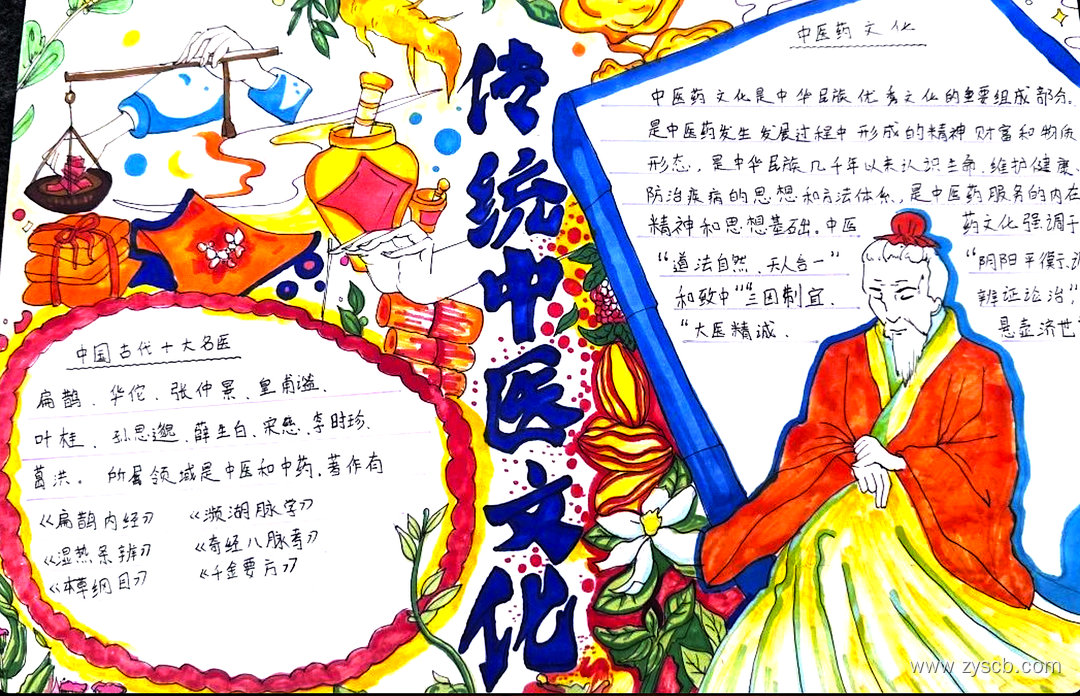 传统中医文化
中医药文化
中医药文化是中华民族优秀文化的重要组成部分。
是中医药发生发展过程中形成的精神财富和物质
形态，是中华民族几千年以来认识生命、维护健康、
防治疾病的思想和方法体系，是中医药服务的内在
精神和思想基础。中医药文化强调
“道法自然、天人合一”“阴阳平衡、
和致中”“三因制宜、辨证论治”
“大医精诚、悬壶济世
中国古代十大名医
扁鹊、华佗、张仲景、皇甫谧、
叶桂、孙思邈、薛生白、宋慈、李时珍、
葛洪。所属领域是中医和中药，著作有
《扁鹊内经》《濒湖脉学》
《湿热条辨》《奇经八脉考》
《本草纲目》《千金要方》
www.zyscb.com